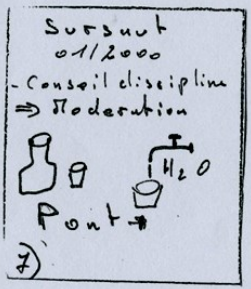 Sursaut
01/2000
- Conseil discipline
⇒ Moderation
H2O
Pont →
7)